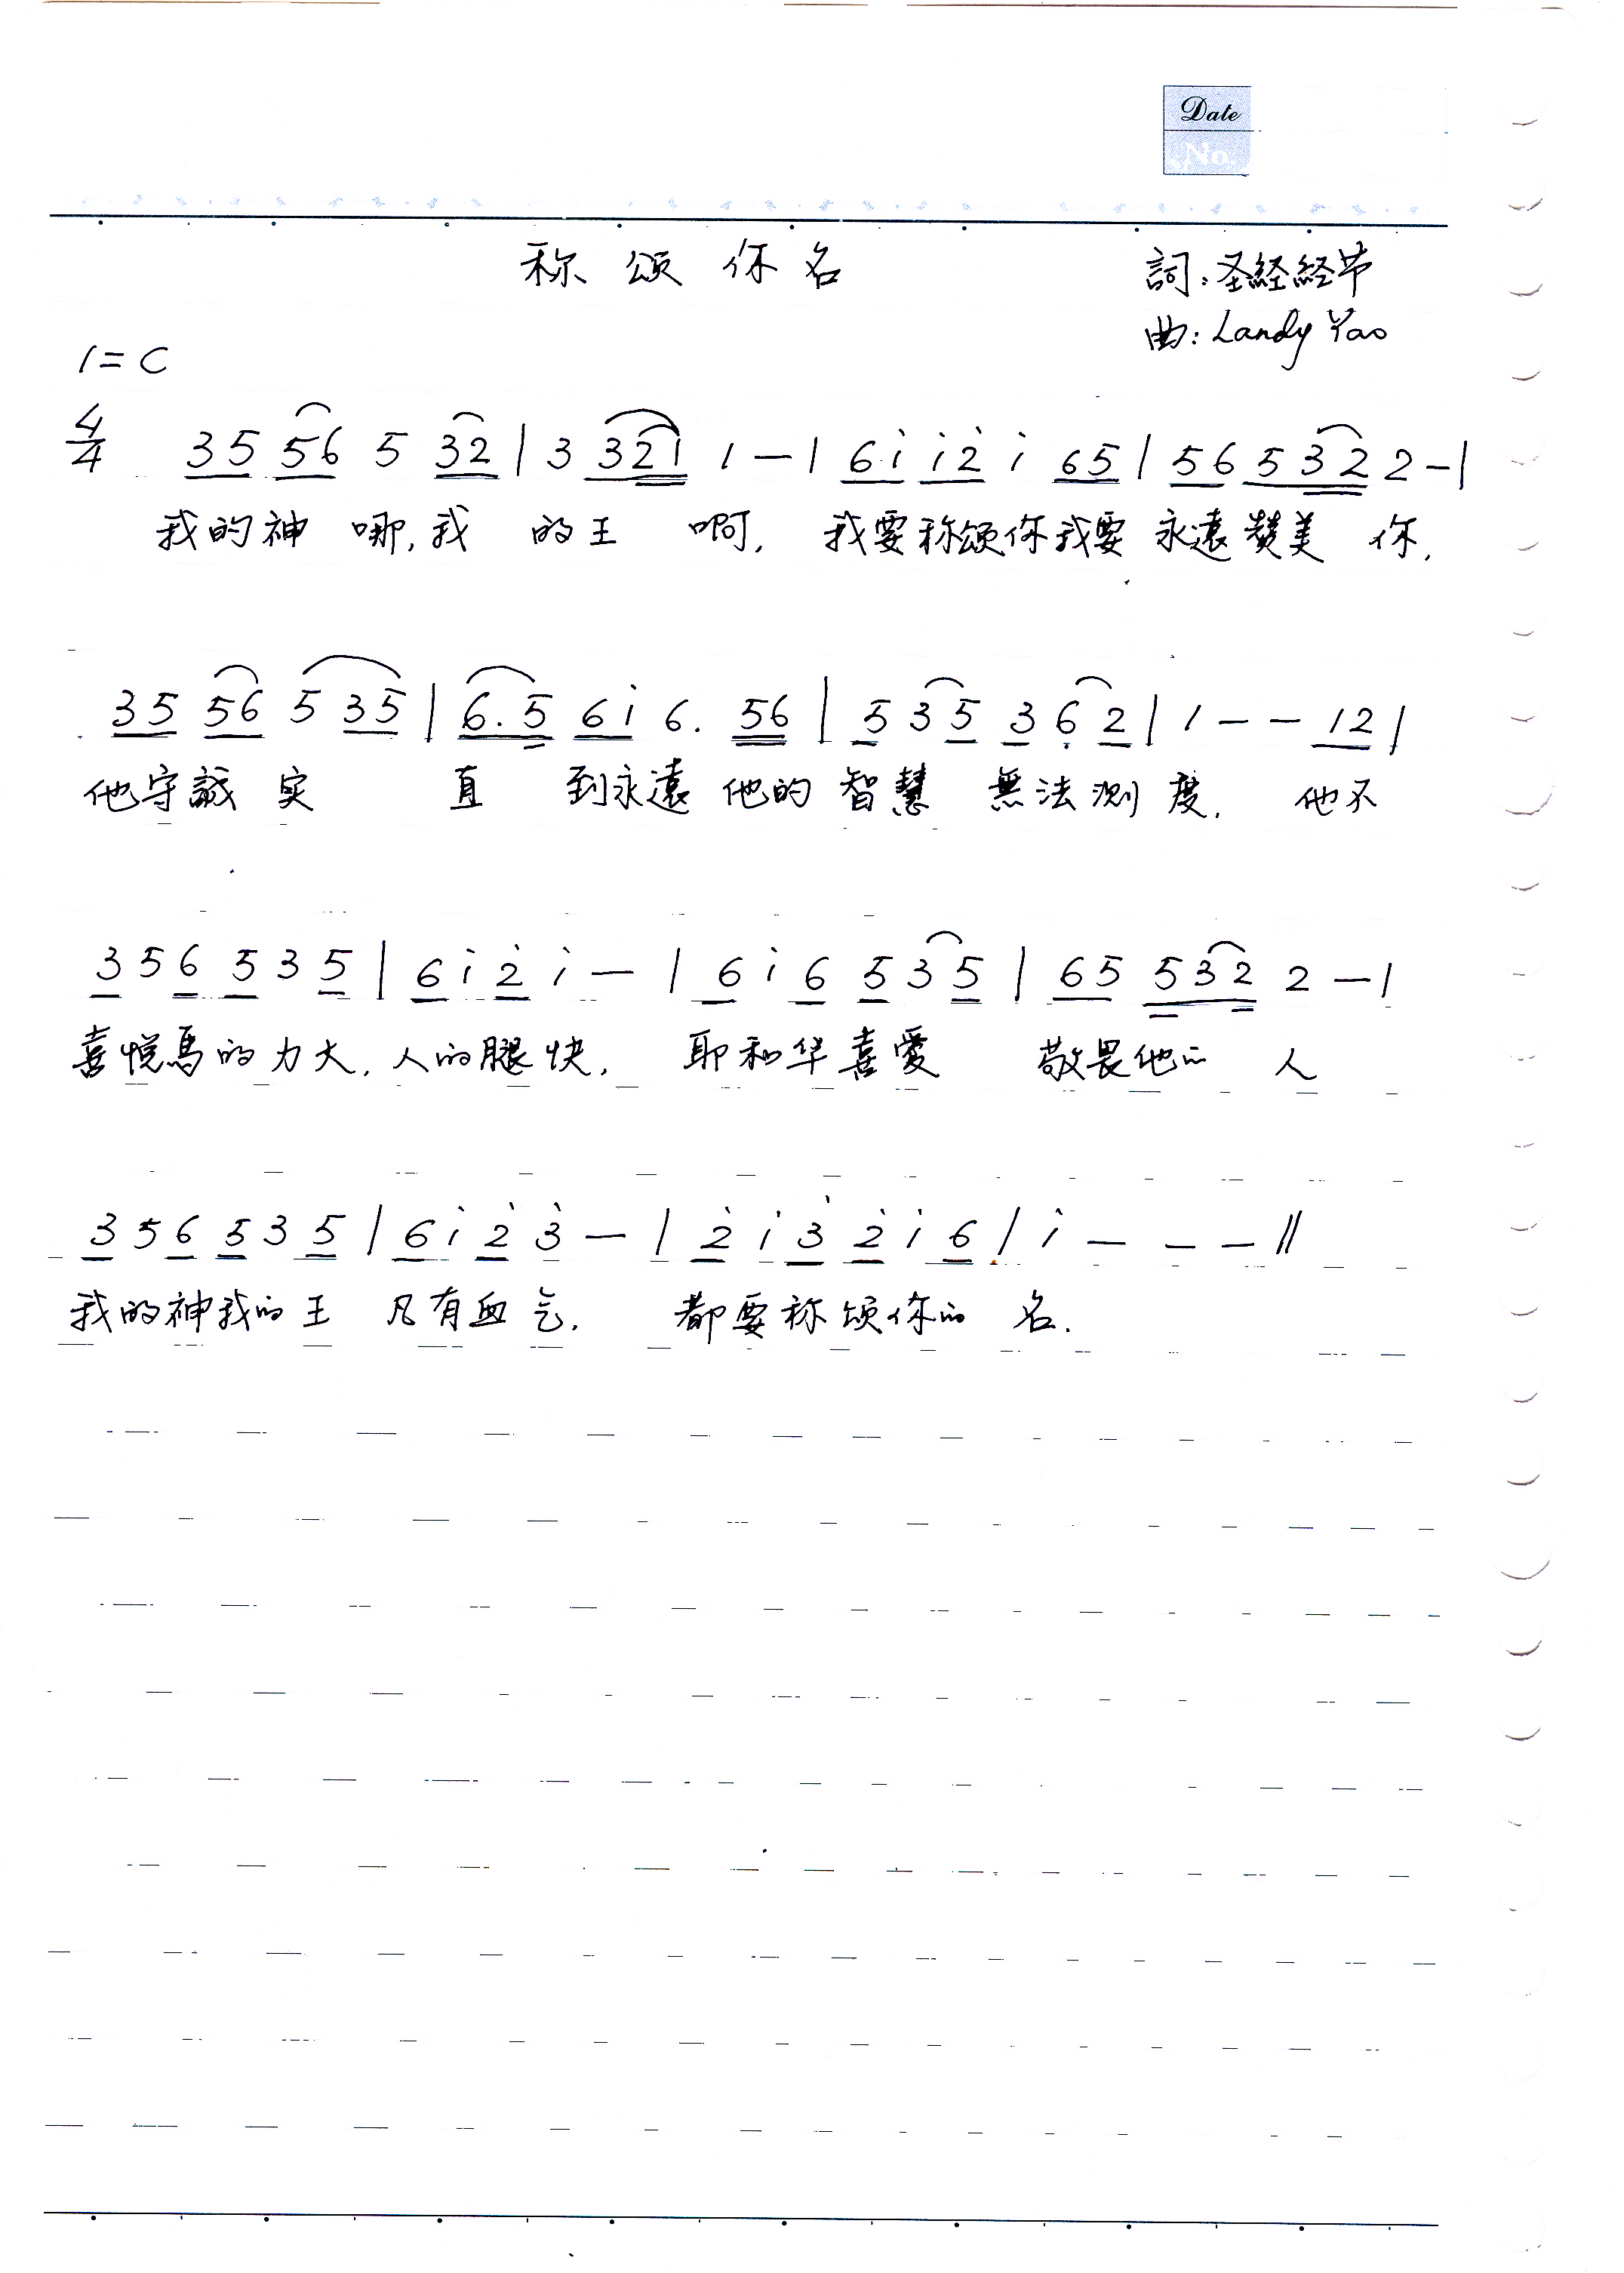 Date
No.
称頌你名
詞:圣経経节
曲: Landy Yao
1=C
4/4 35 56 5 32 | 3 321 1 — | 6i i2 i 65 | 56 532 2 — |
我的神哪,我的王啊, 我要称颂你我要永遠赞美你.
35 56 5 35 | 6.5 6i 6. 56 | 5 3 5 3 6 2 | 1 — — 12 |
他守誠实 直到永遠他的智慧 無法測度. 他不
3 5 6 5 3 5 | 6 i 2 i — | 6 i 6 5 3 5 | 65 532 2 — |
喜悅馬的力大, 人的腿快, 耶和华喜愛 敬畏他的人
3 5 6 5 3 5 | 6 i 2 3 — | 2 i 3 2 i 6 | i — — — ||
我的神我的王 凡有血气. 都要称颂你的名.